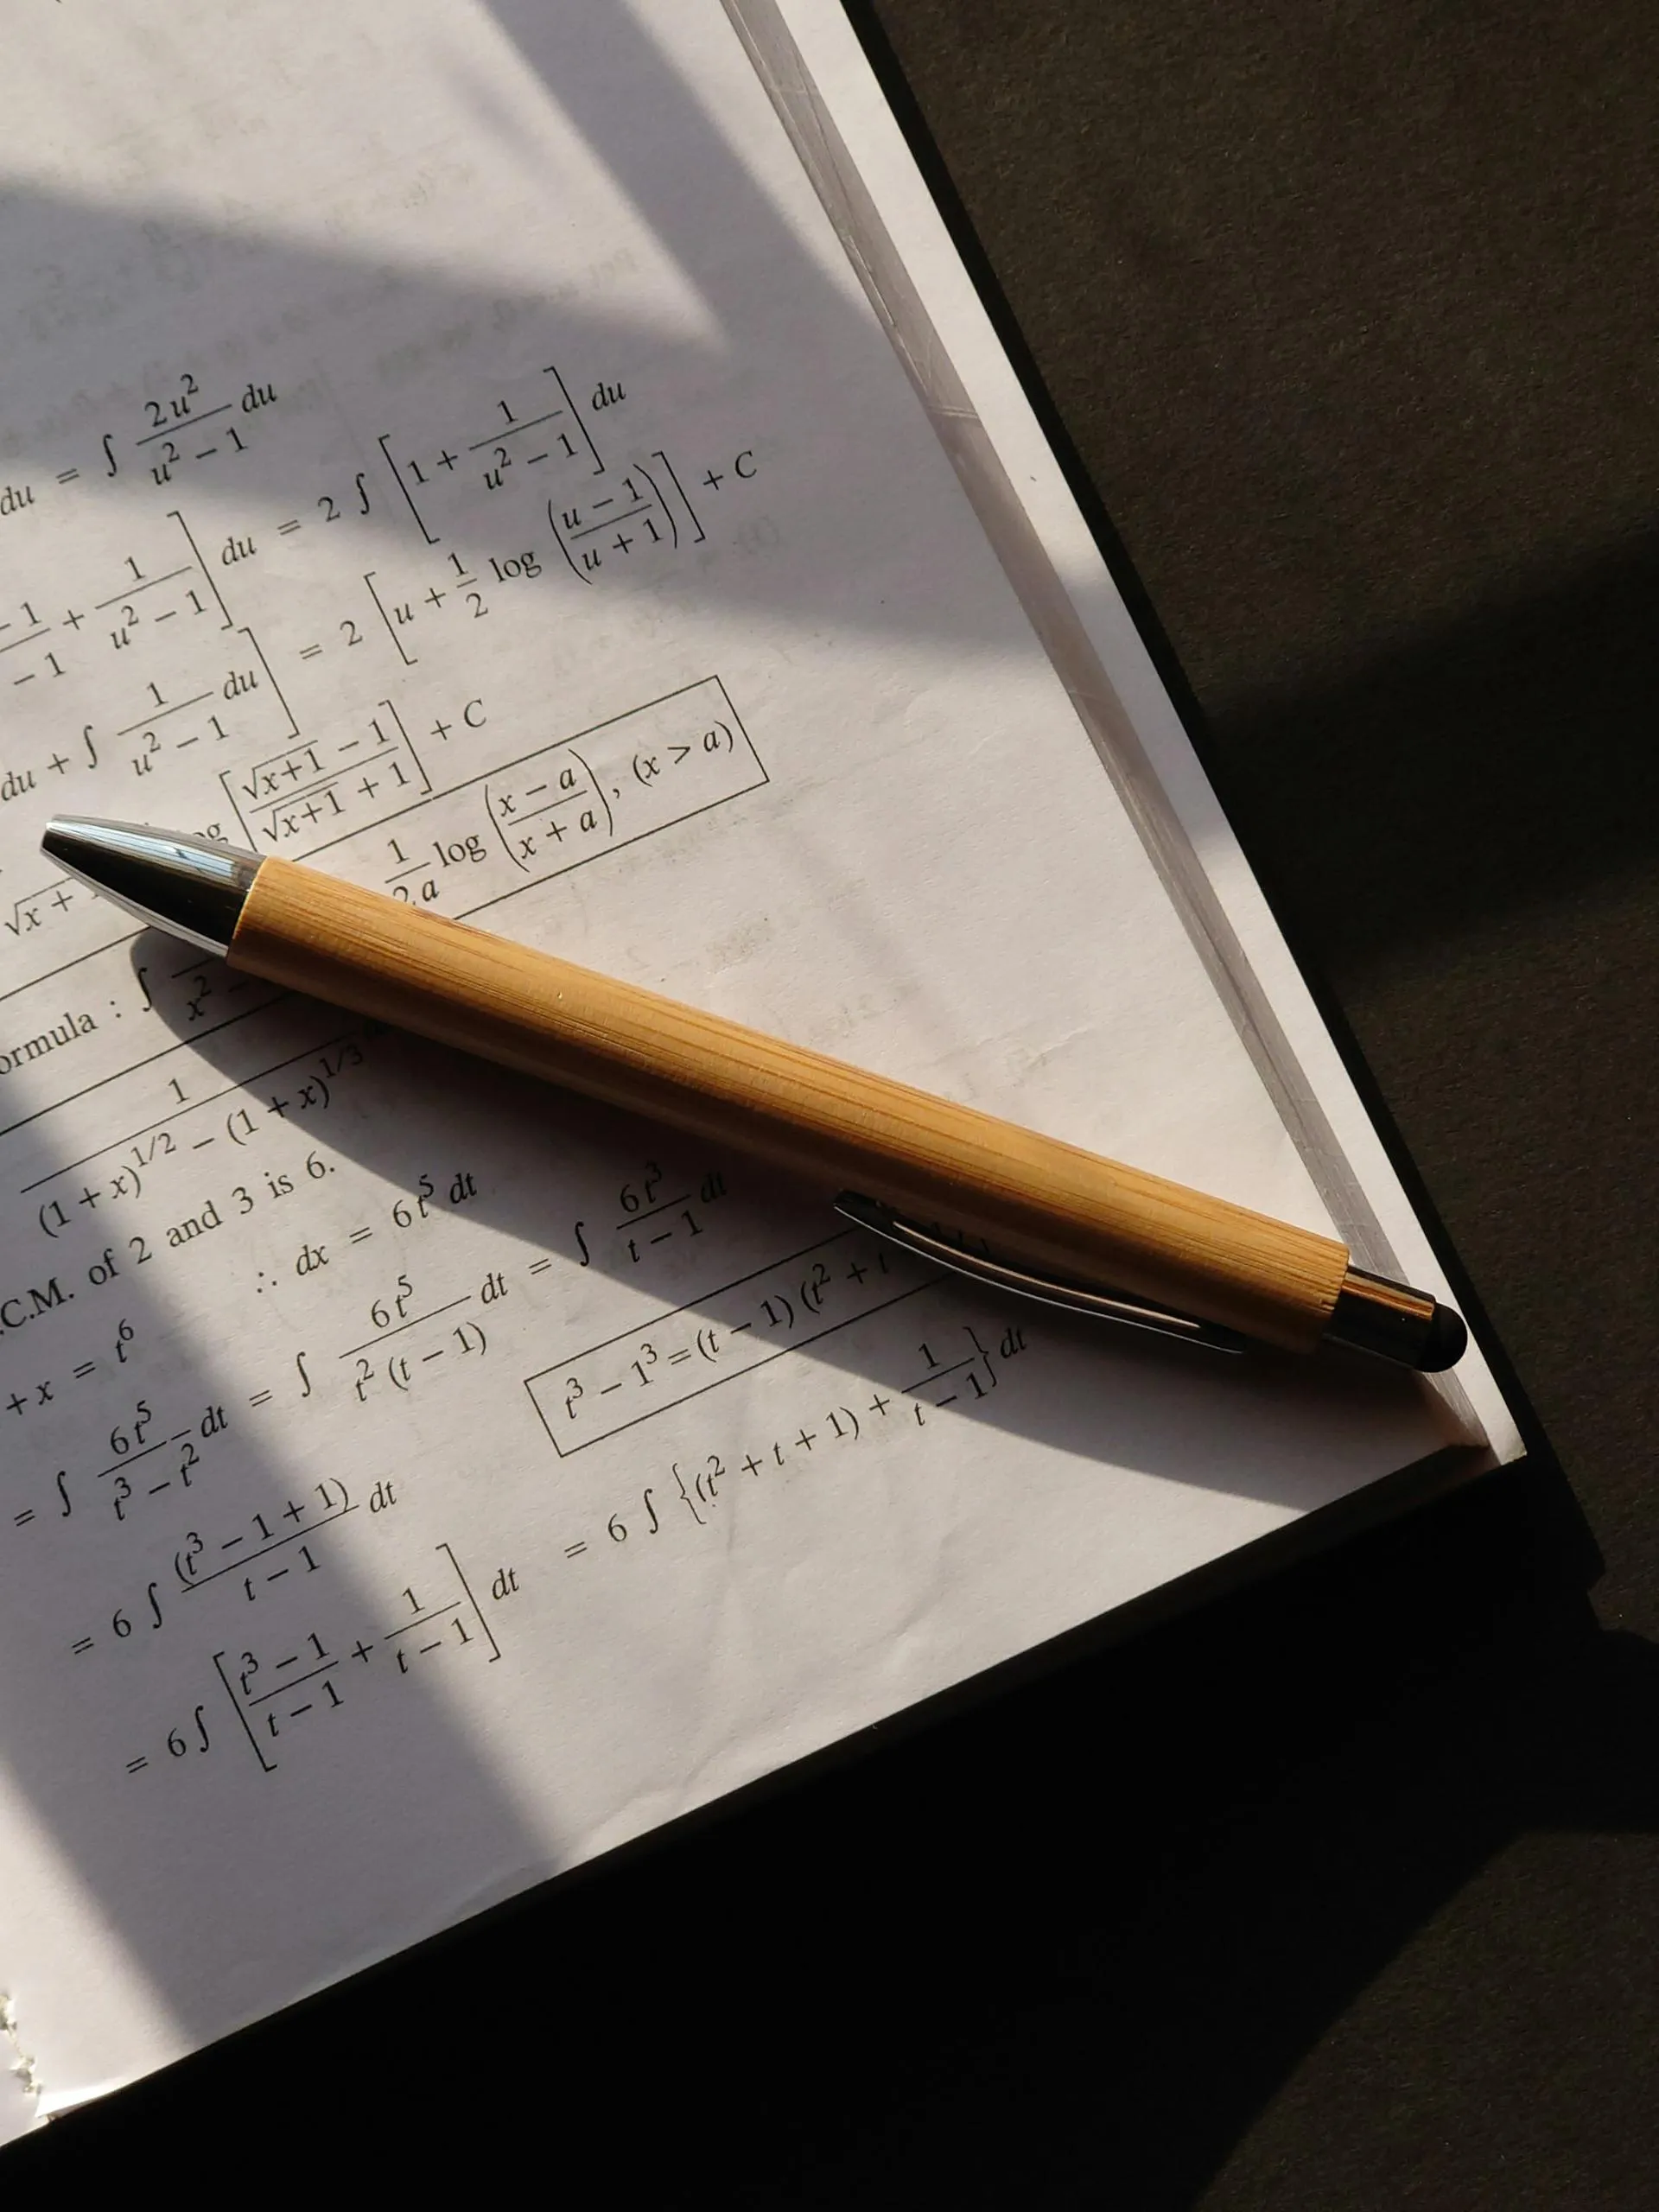 du = ∫ 2u²/(u² − 1) du
− 1/− 1 + 1/(u² − 1)] du = 2 ∫ [1 + 1/(u² − 1)] du
du + ∫ 1/(u² − 1) du] = 2 [u + 1/2 log ((u − 1)/(u + 1))] + C
√x + [(√x+1 − 1)/(√x+1 + 1)] + C
: ∫ x² − 1/2a log ((x − a)/(x + a)), (x > a)
1/((1 + x)^1/2 − (1 + x)^1/3)
.C.M. of 2 and 3 is 6.
+ x = t⁶ ∴ dx = 6t⁵ dt
= ∫ 6t⁵/(t³ − t²) dt = ∫ 6t⁵/(t² (t − 1)) dt = ∫ 6t³/(t − 1) dt
= 6 ∫ (t³ − 1 + 1)/(t − 1) dt t³ − 1³ = (t − 1) (t² + t
= 6 ∫ [(t³ − 1)/(t − 1) + 1/(t − 1)] dt = 6 ∫ {(t² + t + 1) + 1/(t − 1)} dt